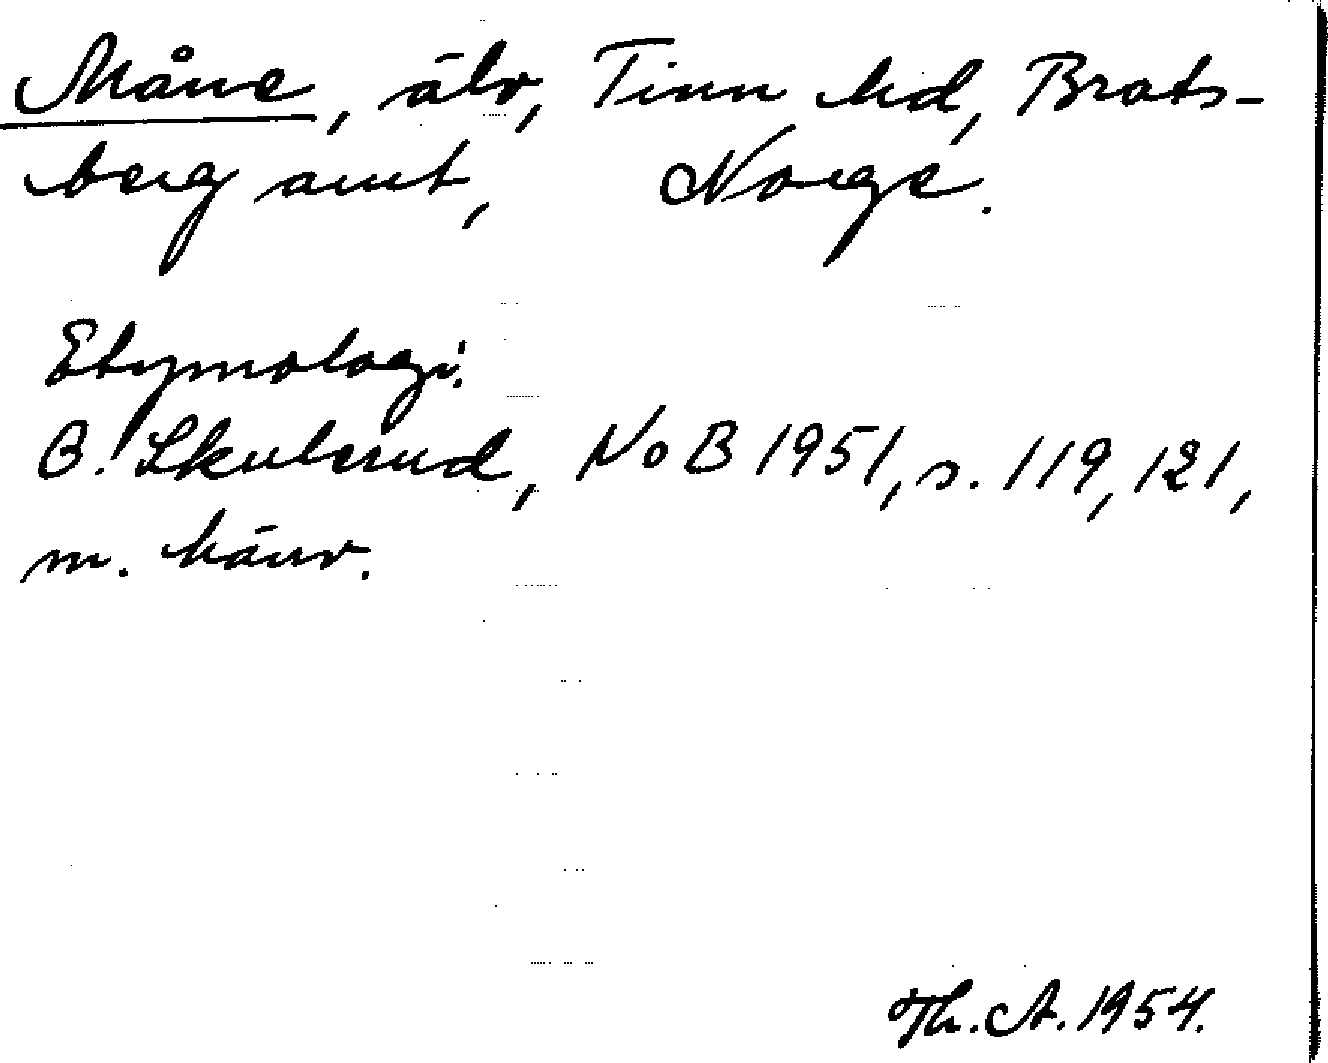 Måne, älv, Tinn hd, Brats-
berg amt, Norge.
Etymologi:
B. Skulerud, NoB 1951, s. 119, 121,
m. hänv.
Th. A. 1954.